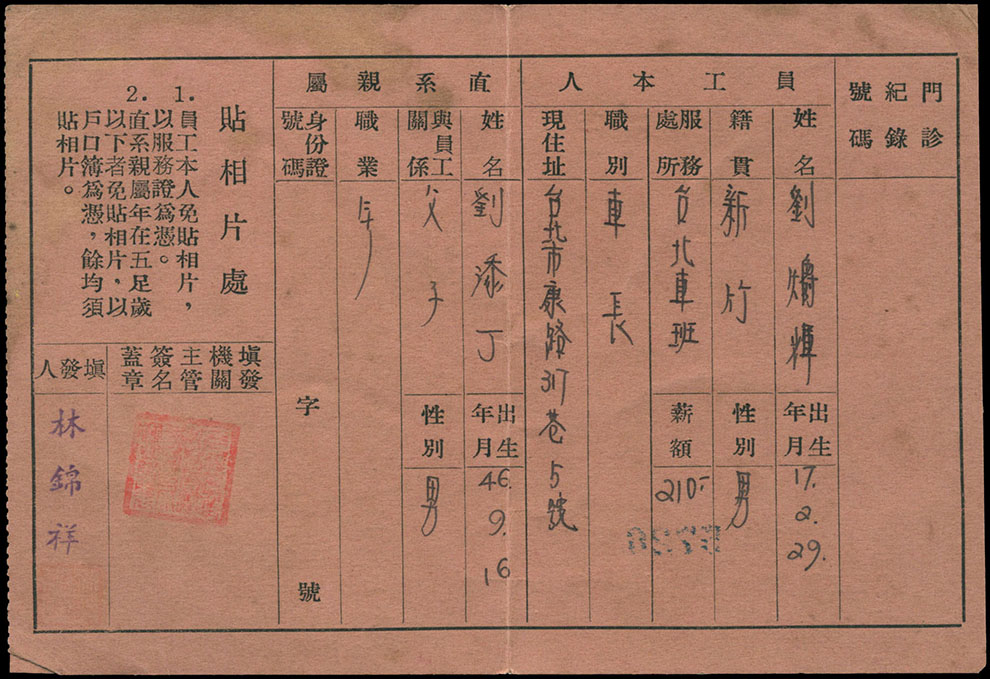 門診紀錄號碼
員工本人
姓名
劉煥輝
出生年月
17. 2. 29.
籍貫
新竹
性別
男
服務處所
台北車班
薪額
210.-
職別
車長
現住址
台北市康路317巷5號
直系親屬
姓名
劉添丁
出生年月
46. 9. 16
與員工關係
父子
性別
男
職業
身份證號碼
字號
貼相片處
1.員工本人免貼相片，
以服務證為憑。
2.直系親屬年在五足歲
以下者免貼相片，以
戶口簿為憑，餘均須
貼相片。
填發機關
主管
簽名
蓋章
填發人
林錦祥